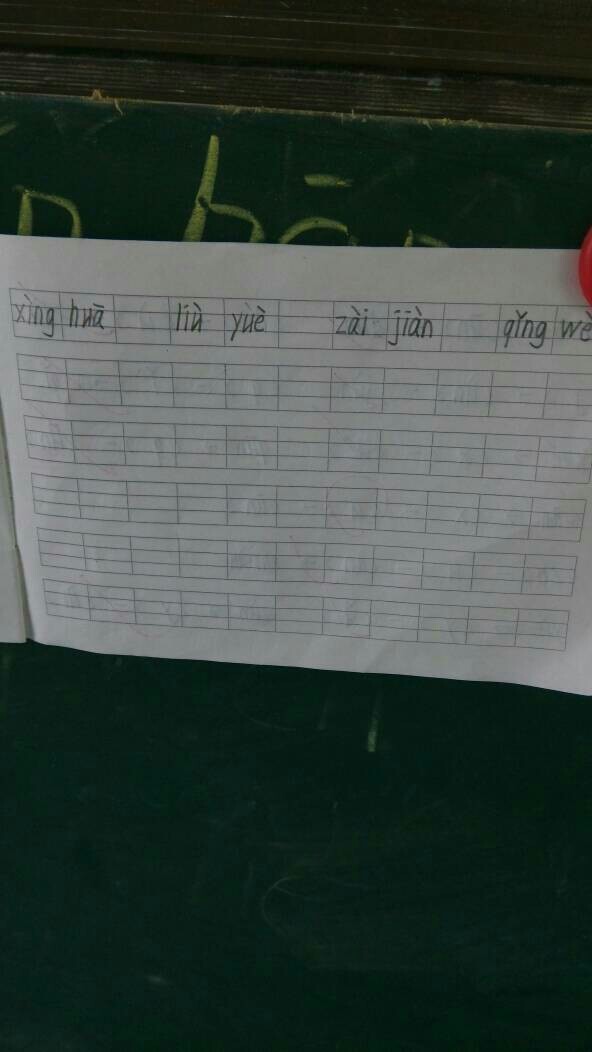 xìng huā liù yuè zài jiàn qǐng wè